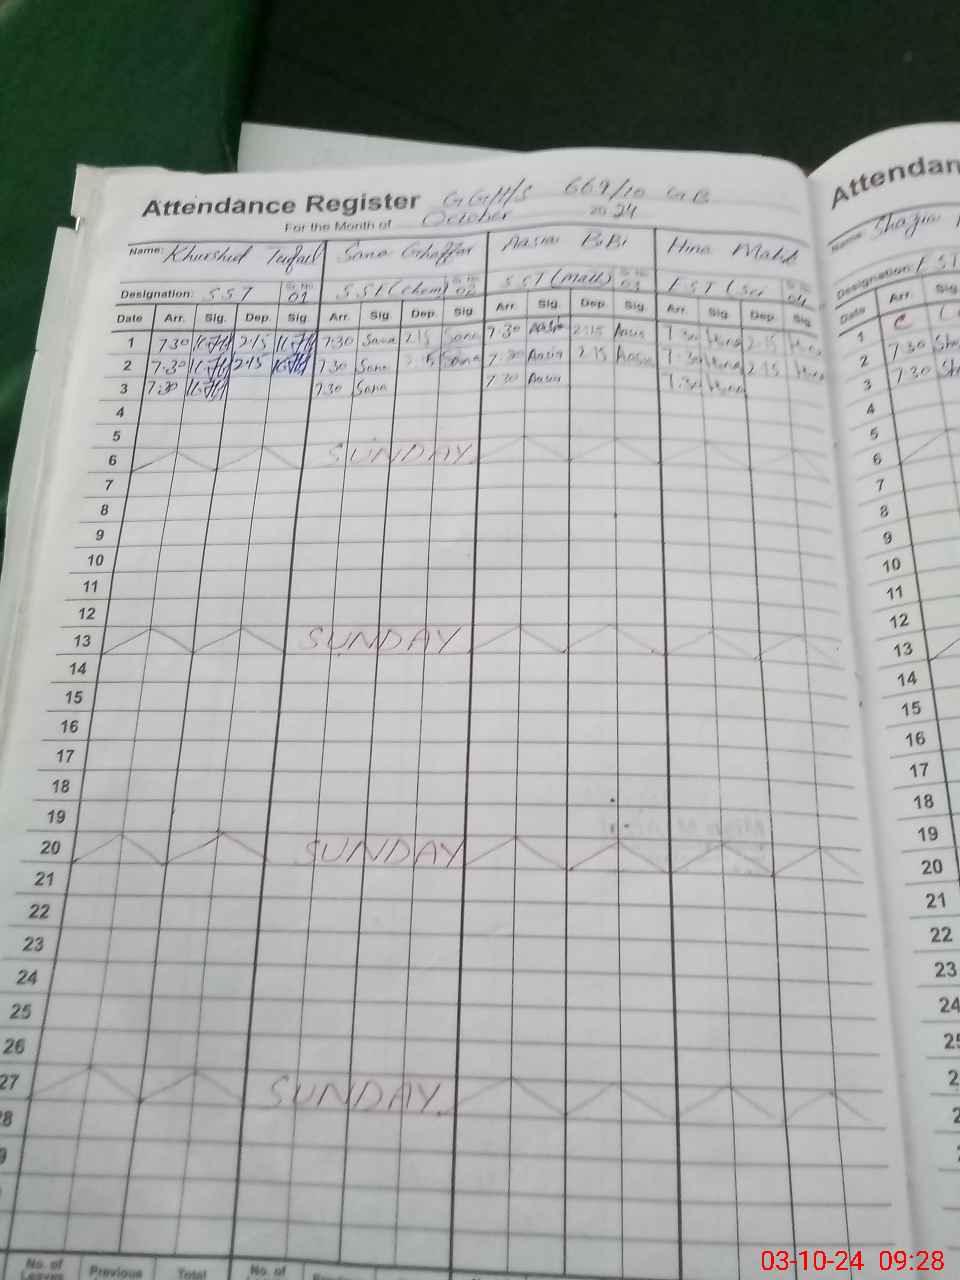 Attendance Register GGH/S 669/10 GB
For the Month of October 2024
Name: Khurshid Tufail Sana Ghaffar Aasia BiBi Hina
Designation: SST Sr. No. 01 SST (Chem) Sr. No. 02 SST (Math) Sr. No. 03 EST (Sci Sr. No. 04
Date Arr. Sig. Dep. Sig. Arr. Sig. Dep. Sig. Arr. Sig. Dep. Sig. Arr. Sig. Dep. Sig.
1 7:30 2:15 7:30 Sana 2:15 Sana 7:30 Aasia 2:15 Aasia 7:30 Hina 2:15 Hina
2 7:30 2:15 7:30 Sana 2:15 Sana 7:30 Aasia 2:15 Aasia 7:30 Hina 2:15 Hina
3 7:30 7:30 Sana 7:30 Aasia 7:30 Hina
4
5
6 SUNDAY
7
8
9
10
11
12
13 SUNDAY
14
15
16
17
18
19
20 SUNDAY
21
22
23
24
25
26
27 SUNDAY
No. of Leaves Previous Total No. of
Attendan
Name: Shazia
Designation: EST
Date Arr. Sig
1 C
2 7:30
3 7:30
4
5
6
7
8
9
10
11
12
13
14
15
16
17
18
19
20
21
22
23
24
03-10-24 09:28